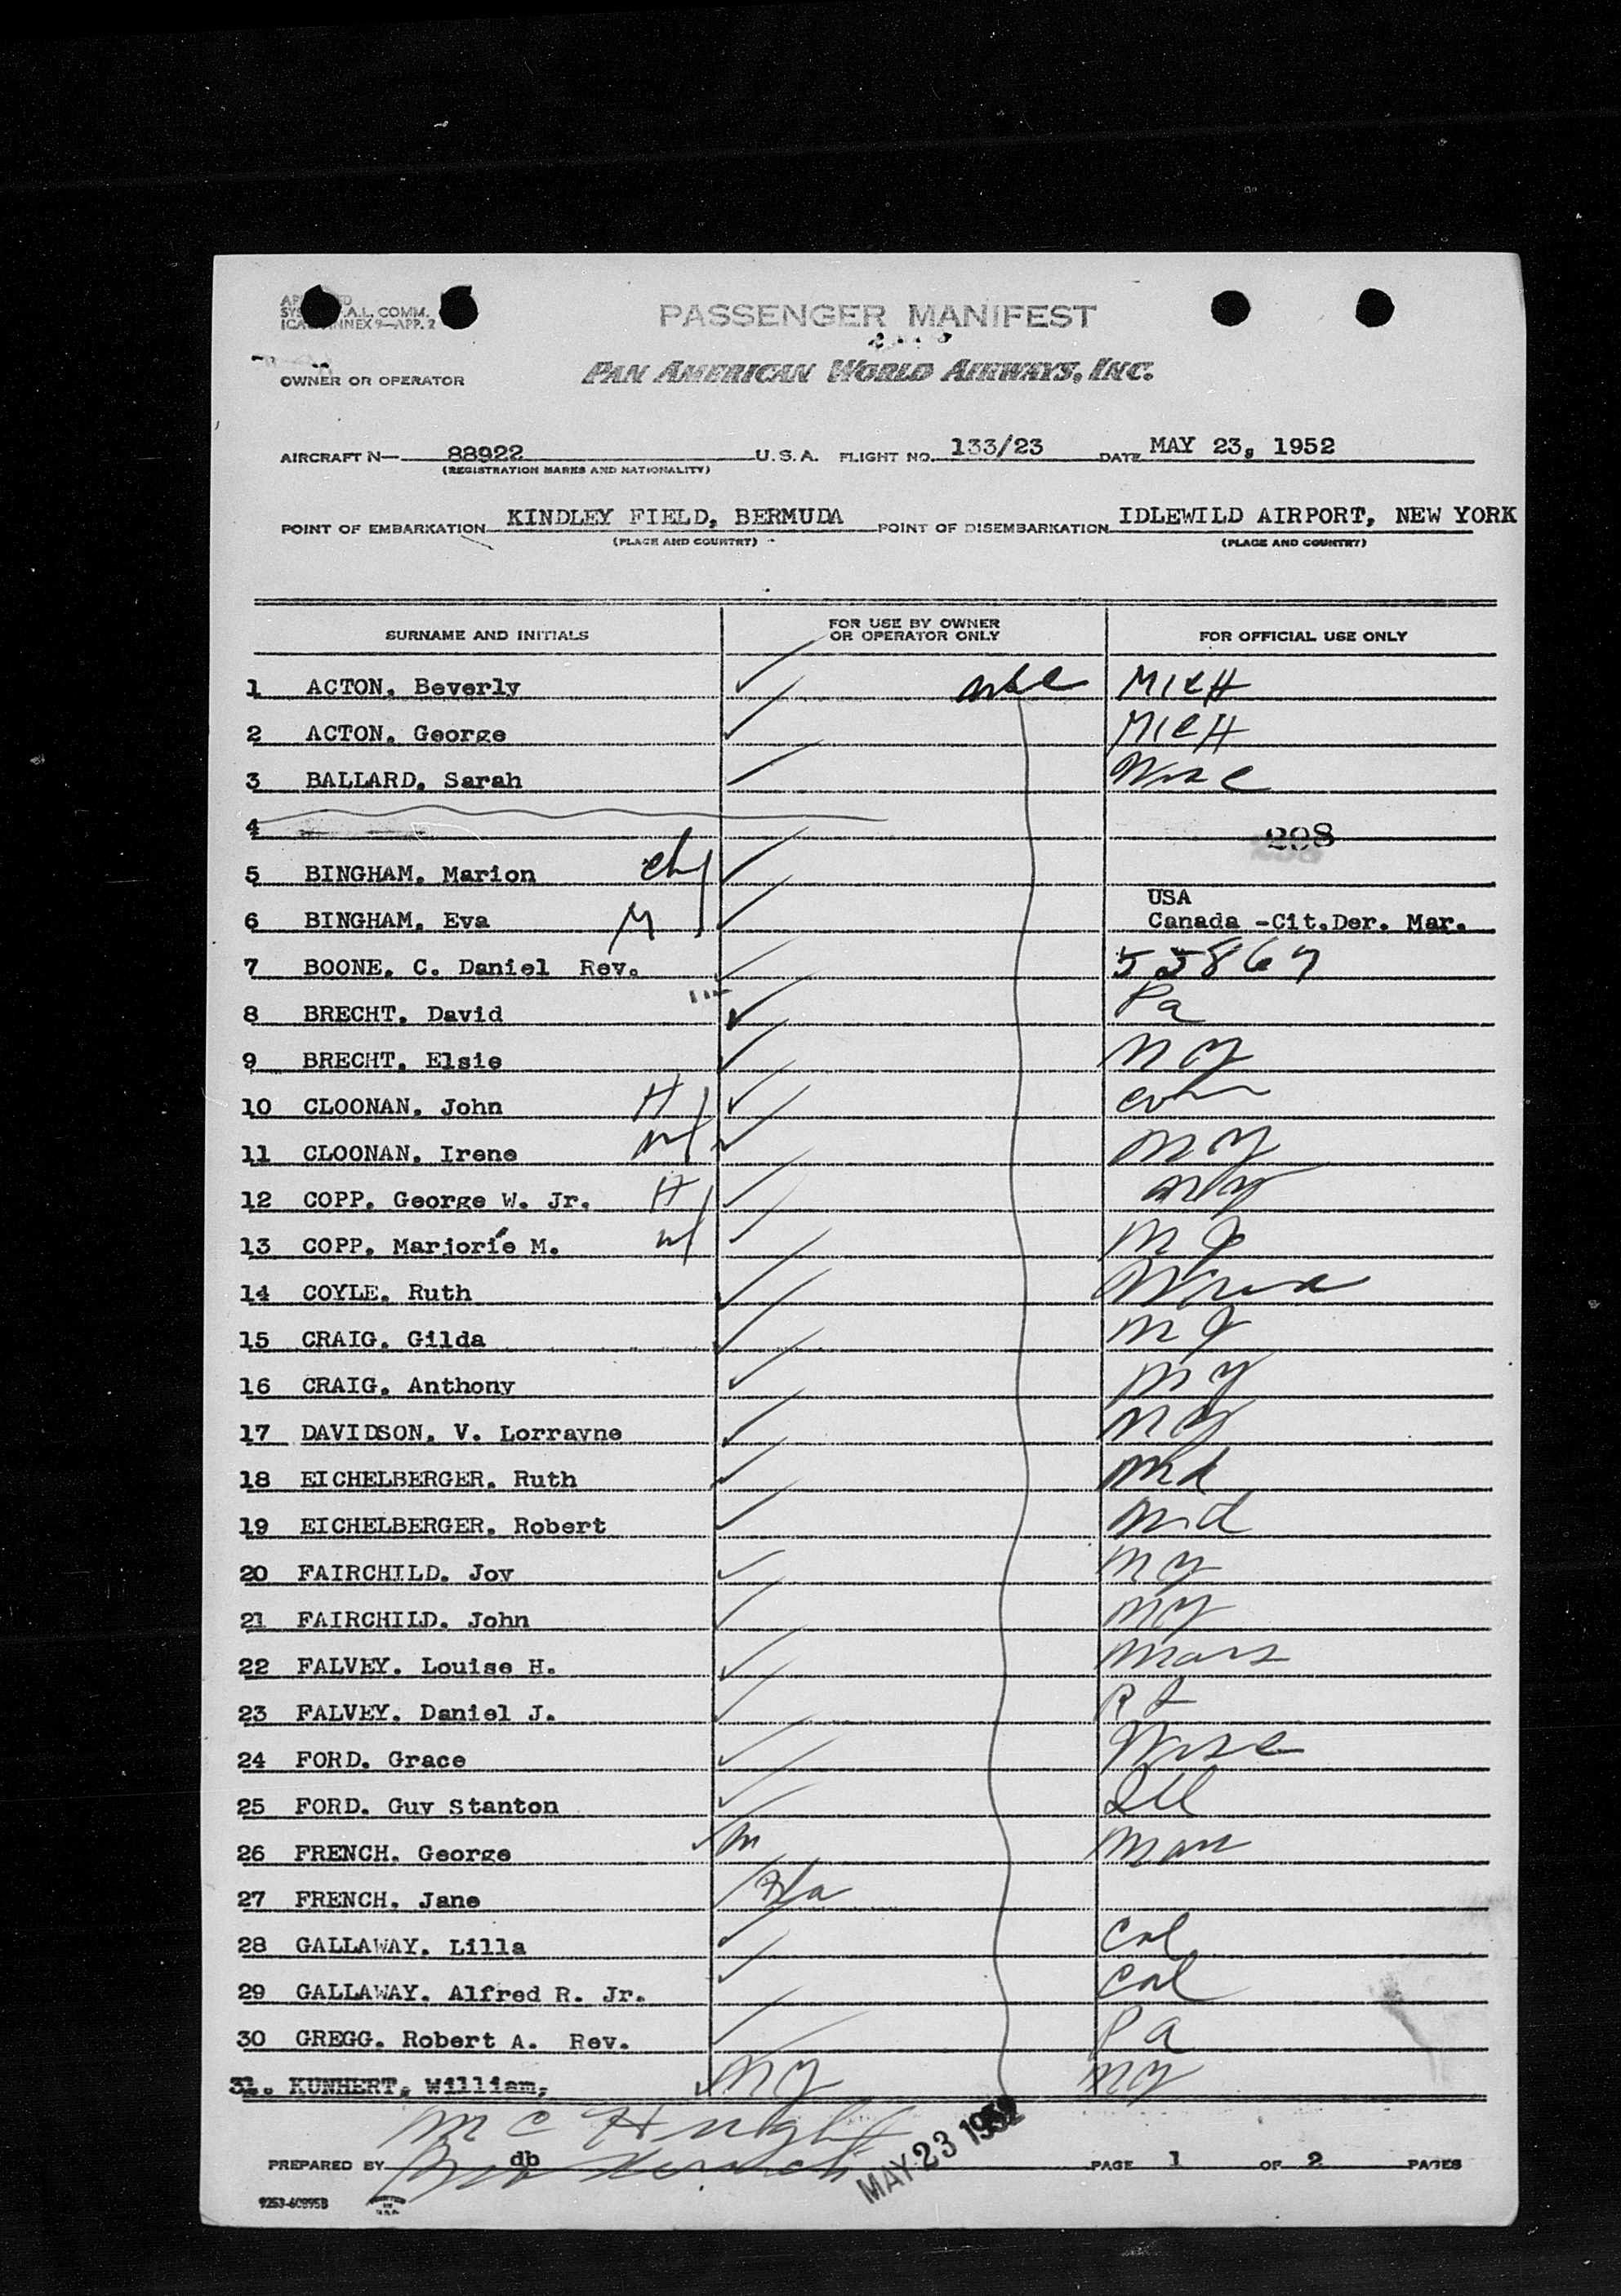 PASSENGER MANIFEST
ICAO ANNEX 9—APP. 2
OWNER OR OPERATOR PAN AMERICAN WORLD AIRWAYS, INC.
AIRCRAFT N— 88922 U.S.A. FLIGHT NO. 133/23 DATE MAY 23, 1952
(REGISTRATION MARKS AND NATIONALITY)
POINT OF EMBARKATION KINDLEY FIELD, BERMUDA POINT OF DISEMBARKATION IDLEWILD AIRPORT, NEW YORK
(PLACE AND COUNTRY) (PLACE AND COUNTRY)
SURNAME AND INITIALS FOR USE BY OWNER OR OPERATOR ONLY FOR OFFICIAL USE ONLY
1 ACTON, Beverly MICH
2 ACTON, George MICH
3 BALLARD, Sarah Wisc
4 208
5 BINGHAM, Marion ch
USA
6 BINGHAM, Eva M Canada -Cit.Der. Mar.
7 BOONE, C. Daniel Rev. 55867
8 BRECHT, David Pa
9 BRECHT, Elsie NY
10 CLOONAN, John H Conn
11 CLOONAN, Irene W NY
12 COPP, George W. Jr. H NY
13 COPP, Marjorie M. W NJ
14 COYLE, Ruth
15 CRAIG, Gilda NJ
16 CRAIG, Anthony NY
17 DAVIDSON, V. Lorrayne NY
18 EICHELBERGER, Ruth Md
19 EICHELBERGER, Robert Md
20 FAIRCHILD, Joy NY
21 FAIRCHILD, John NY
22 FALVEY, Louise H. Mass
23 FALVEY, Daniel J. RI
24 FORD, Grace Wisc
25 FORD, Guy Stanton Ill
26 FRENCH, George m Mass
27 FRENCH, Jane Fla
28 GALLAWAY, Lilla Cal
29 GALLAWAY, Alfred R. Jr. Cal
30 GREGG, Robert A. Rev. Pa
31. KUNHERT, William, NY NY
McHugh
PREPARED BY db MAY 23 1952 PAGE 1 OF 2 PAGES
9253-60895B
PRINTED IN U.S.A.